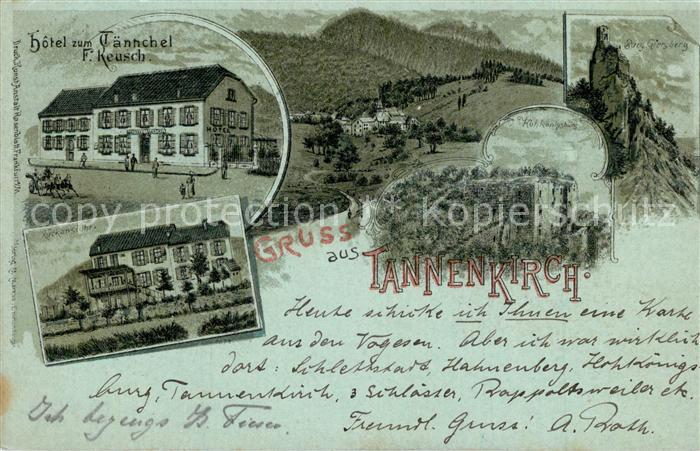 Hôtel zum Tännchel
F. Keusch.
HOTEL
Burg Giersberg
Hohkönigsburg
copy protection * Kopierschutz
Kuranstalt
GRUSS
aus
TANNENKIRCH.
Heute schicke ich Ihnen eine Karte
aus den Vogesen. Aber ich war wirklich
dort: Schlettstadt, Hahnenberg, Hohkönigs-
burg, Tannenkirch, 3 Schlösser, Rappoltsweiler etc.
Freundl. Gruss! A. Roth.
Ich